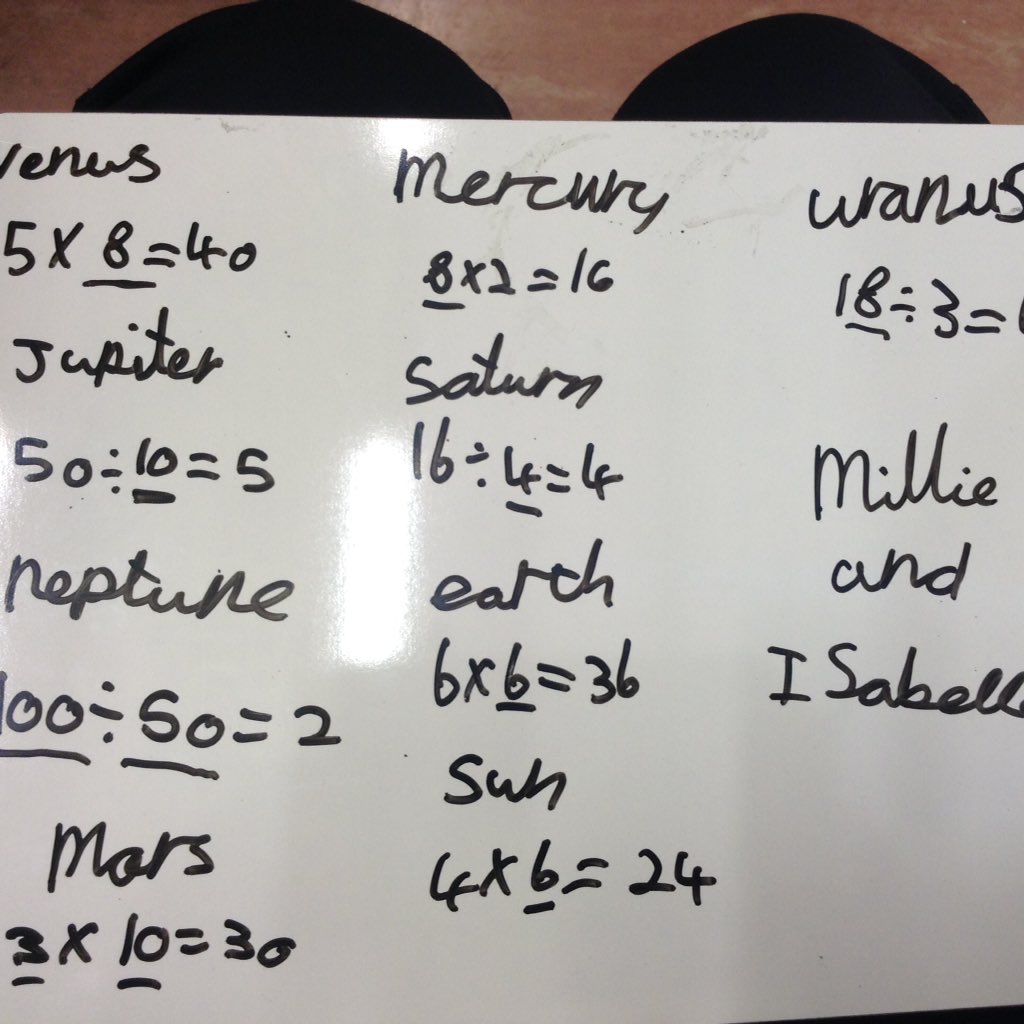 venus
5 x 8 = 40
Jupiter
50 ÷ 10 = 5
neptune
100 ÷ 50 = 2
Mars
3 x 10 = 30
Mercury
8 x 2 = 16
Saturn
16 ÷ 4 = 4
earth
6 x 6 = 36
Sun
4 x 6 = 24
uranus
18 ÷ 3 =
Millie
and
ISabelle